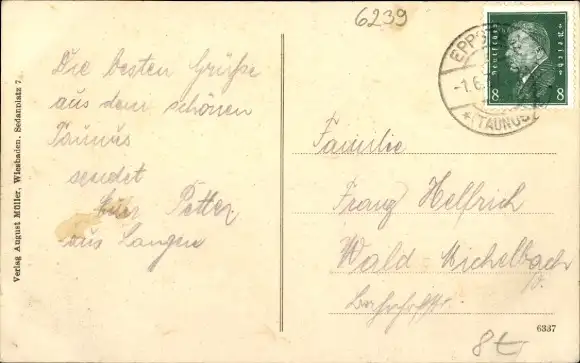 6239
EPPS
-1.6.
* (TAUNUS)
Deutsches Reich
8 8
Die besten Grüße
aus dem schönen
Taunus
sendet
Euer Petter
aus Langen
Familie
Franz Helfrich
Wald-Michelbach
Verlag August Müller, Wiesbaden, Sedanplatz 7
6337
8t